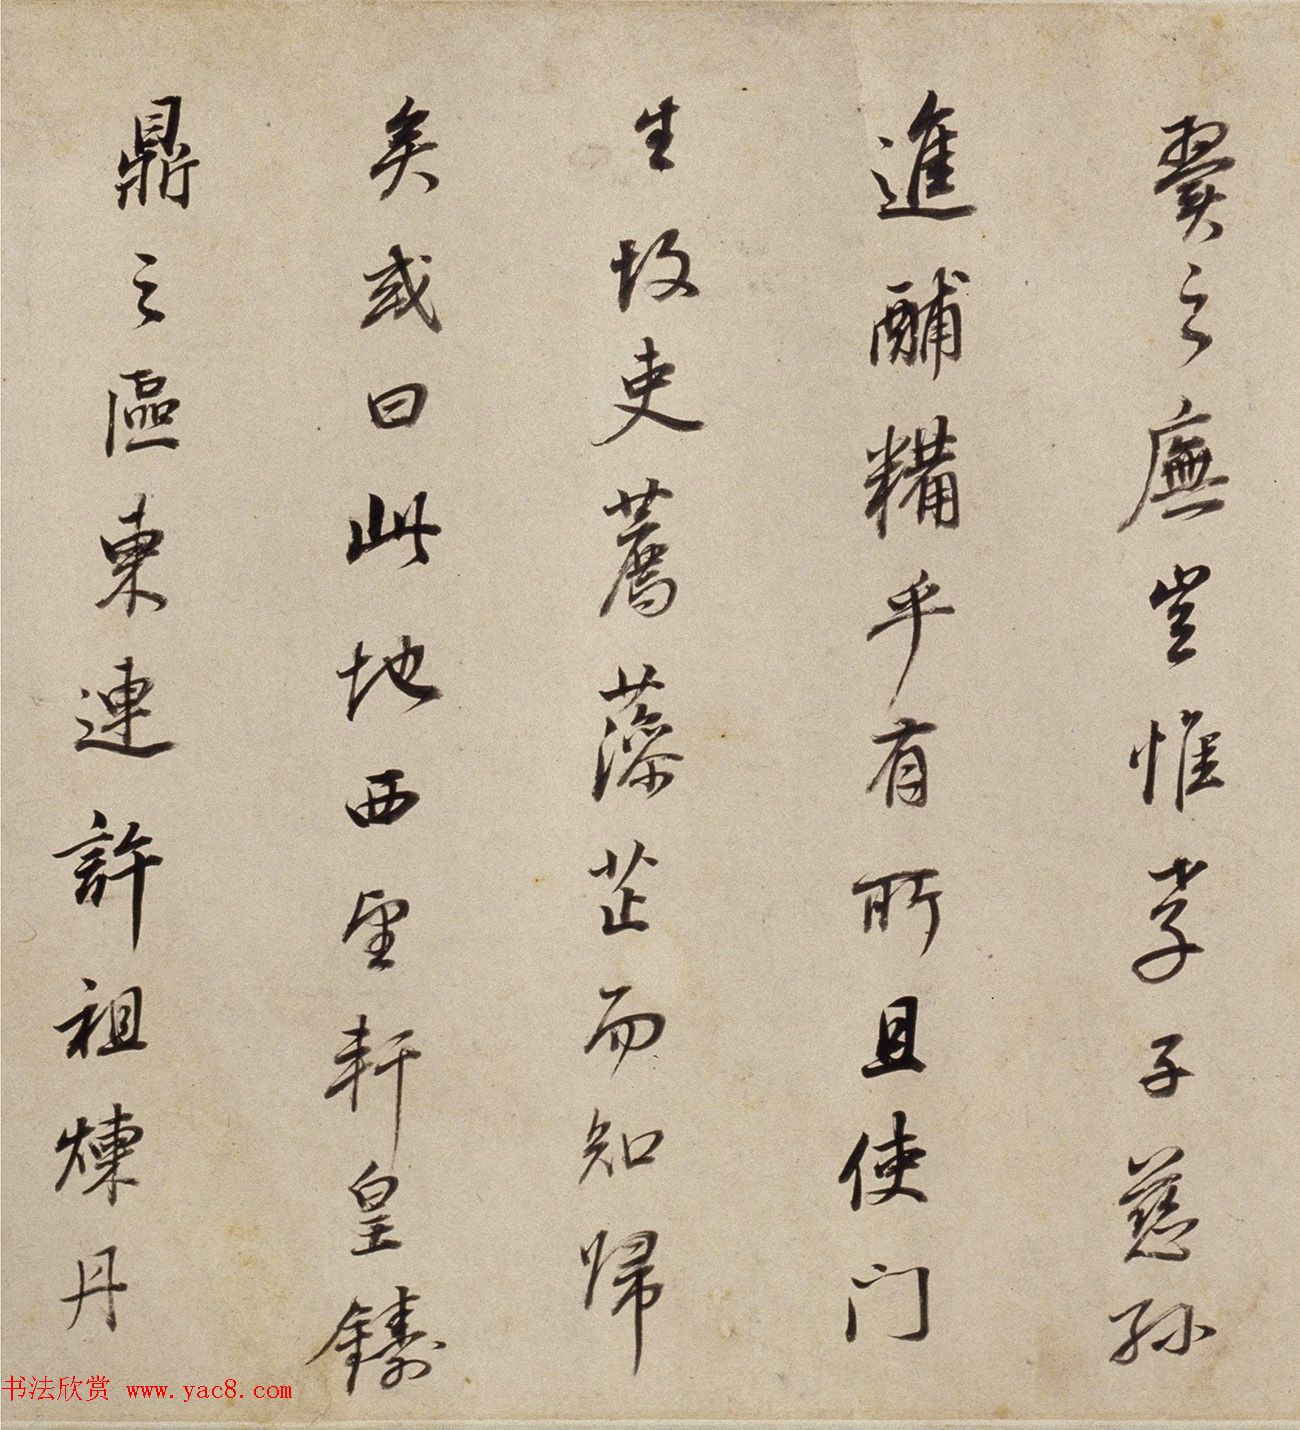 翼之廡豈惟孝子慈孫
進酺糒乎有所且使門
生故吏薦藻芷而知歸
矣或曰此地西望軒皇鑄
鼎之區東連許祖煉丹
书法欣赏 www.yac8.com